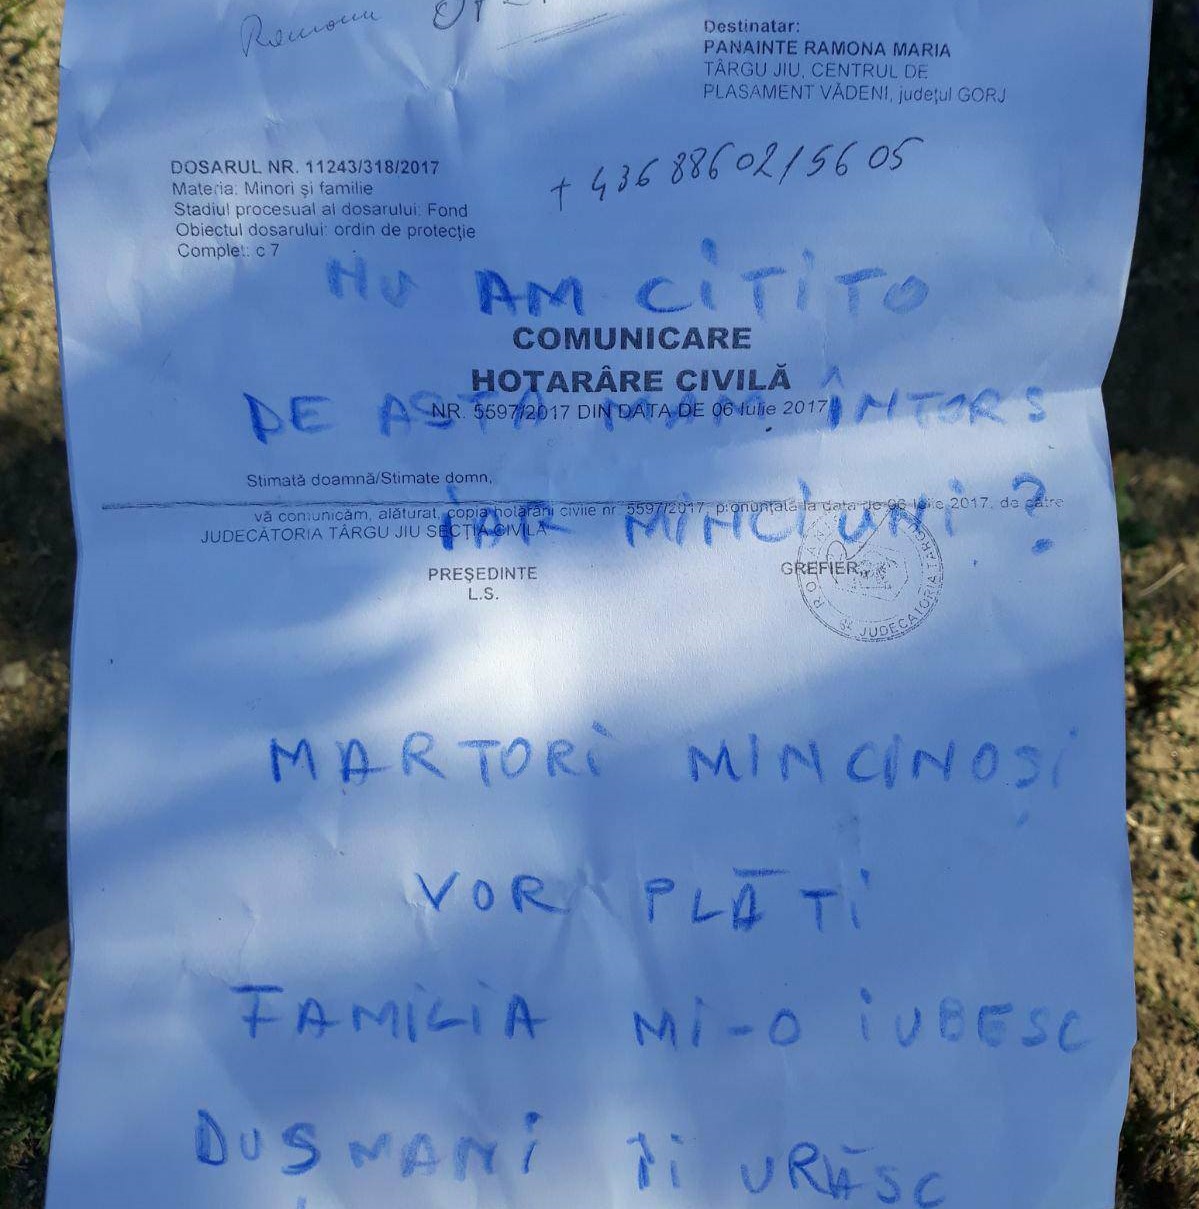 Ramona
Destinatar:
PANAINTE RAMONA MARIA
TÂRGU JIU, CENTRUL DE
PLASAMENT VĂDENI, județul GORJ
DOSARUL NR. 11243/318/2017
Materia: Minori și familie
Stadiul procesual al dosarului: Fond
Obiectul dosarului: ordin de protecție
Complet: c 7
+4368860215605
NU AM CITITO
COMUNICARE
HOTARÂRE CIVILĂ
DE ASTA MAM ÎNTORS
NR. 5597/2017 DIN DATA DE 06 Iulie 2017
Stimată doamnă/Stimate domn,
IAR MINCIUNI?
vă comunicăm, alăturat, copia hotărârii civile nr 5597/2017, pronunțată la data de 06 Iulie 2017, de către
JUDECĂTORIA TÂRGU JIU SECȚIA CIVILĂ
PREȘEDINTE
L.S.
GREFIER,
JUDECĂTORIA TÂRG
MARTORI MINCINOȘI
VOR PLĂTI
FAMILIA MI-O IUBESC
DUSMANI ÎI URĂSC